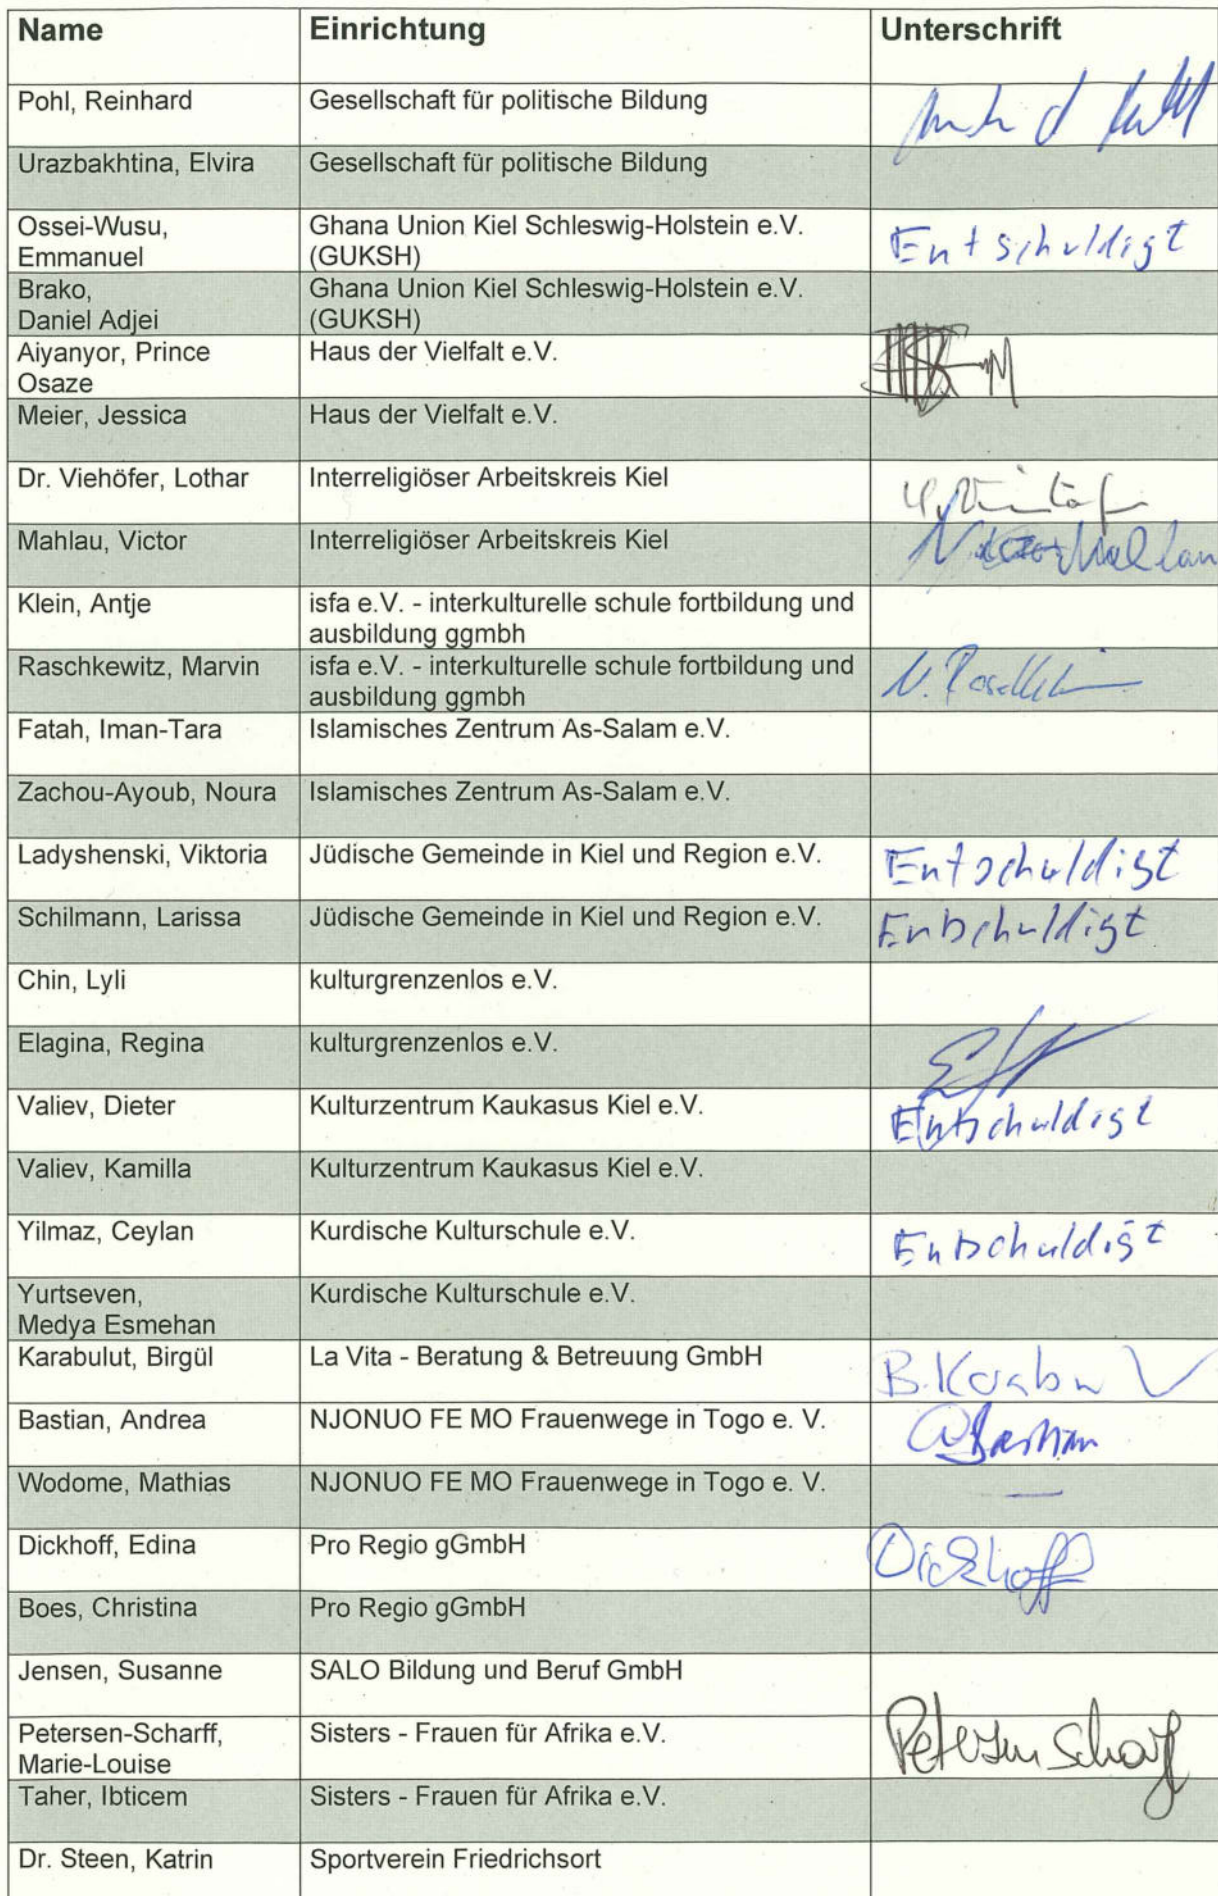 Name Einrichtung Unterschrift
Pohl, Reinhard Gesellschaft für politische Bildung
Urazbakhtina, Elvira Gesellschaft für politische Bildung
Ossei-Wusu, Ghana Union Kiel Schleswig-Holstein e.V. Entschuldigt
Emmanuel (GUKSH)
Brako, Ghana Union Kiel Schleswig-Holstein e.V.
Daniel Adjei (GUKSH)
Aiyanyor, Prince Haus der Vielfalt e.V.
Osaze
Meier, Jessica Haus der Vielfalt e.V.
Dr. Viehöfer, Lothar Interreligiöser Arbeitskreis Kiel
Mahlau, Victor Interreligiöser Arbeitskreis Kiel
Klein, Antje isfa e.V. - interkulturelle schule fortbildung und
ausbildung ggmbh
Raschkewitz, Marvin isfa e.V. - interkulturelle schule fortbildung und
ausbildung ggmbh
Fatah, Iman-Tara Islamisches Zentrum As-Salam e.V.
Zachou-Ayoub, Noura Islamisches Zentrum As-Salam e.V.
Ladyshenski, Viktoria Jüdische Gemeinde in Kiel und Region e.V. Entschuldigt
Schilmann, Larissa Jüdische Gemeinde in Kiel und Region e.V. Entschuldigt
Chin, Lyli kulturgrenzenlos e.V.
Elagina, Regina kulturgrenzenlos e.V.
Valiev, Dieter Kulturzentrum Kaukasus Kiel e.V. Entschuldigt
Valiev, Kamilla Kulturzentrum Kaukasus Kiel e.V.
Yilmaz, Ceylan Kurdische Kulturschule e.V. Entschuldigt
Yurtseven, Kurdische Kulturschule e.V.
Medya Esmehan
Karabulut, Birgül La Vita - Beratung & Betreuung GmbH
Bastian, Andrea NJONUO FE MO Frauenwege in Togo e. V. Bastian
Wodome, Mathias NJONUO FE MO Frauenwege in Togo e. V. —
Dickhoff, Edina Pro Regio gGmbH Dickhoff
Boes, Christina Pro Regio gGmbH
Jensen, Susanne SALO Bildung und Beruf GmbH
Petersen-Scharff, Sisters - Frauen für Afrika e.V. Petersen Scharff
Marie-Louise
Taher, Ibticem Sisters - Frauen für Afrika e.V.
Dr. Steen, Katrin Sportverein Friedrichsort